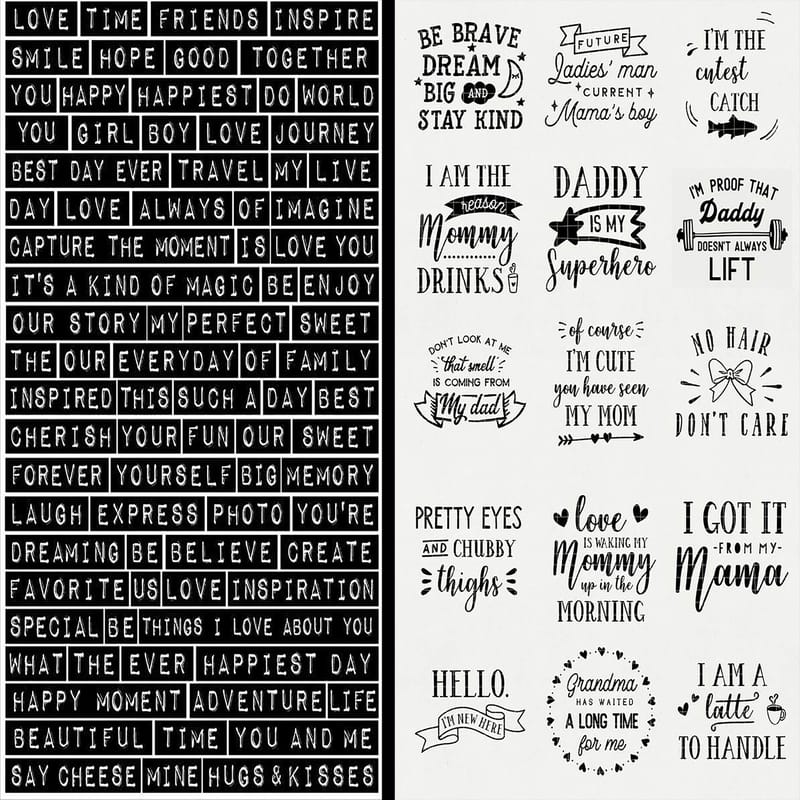 LOVE TIME FRIENDS INSPIRE
SMILE HOPE GOOD TOGETHER
YOU HAPPY HAPPIEST DO WORLD
YOU GIRL BOY LOVE JOURNEY
BEST DAY EVER TRAVEL MY LIVE
DAY LOVE ALWAYS OF IMAGINE
CAPTURE THE MOMENT IS LOVE YOU
IT'S A KIND OF MAGIC BE ENJOY
OUR STORY MY PERFECT SWEET
THE OUR EVERYDAY OF FAMILY
INSPIRED THIS SUCH A DAY BEST
CHERISH YOUR FUN OUR SWEET
FOREVER YOURSELF BIG MEMORY
LAUGH EXPRESS PHOTO YOU'RE
DREAMING BE BELIEVE CREATE
FAVORITE US LOVE INSPIRATION
SPECIAL BE THINGS I LOVE ABOUT YOU
WHAT THE EVER HAPPIEST DAY
HAPPY MOMENT ADVENTURE LIFE
BEAUTIFUL TIME YOU AND ME
SAY CHEESE MINE HUGS & KISSES
BE BRAVE
DREAM
BIG AND
STAY KIND
FUTURE
Ladies' man
CURRENT
Mama's boy
I'M THE
cutest
CATCH
I AM THE
reason
Mommy
DRINKS
DADDY
IS MY
Superhero
I'M PROOF THAT
Daddy
DOESN'T ALWAYS
LIFT
DON'T LOOK AT ME
that smell
IS COMING FROM
My dad
of course
I'M CUTE
you have seen
MY MOM
NO HAIR
DON'T CARE
PRETTY EYES
AND CHUBBY
thighs
love
IS WAKING MY
Mommy
up in the
MORNING
I GOT IT
-FROM MY-
Mama
HELLO.
I'M NEW HERE
Grandma
HAS WAITED
A LONG TIME
for me
I AM A
latte
TO HANDLE